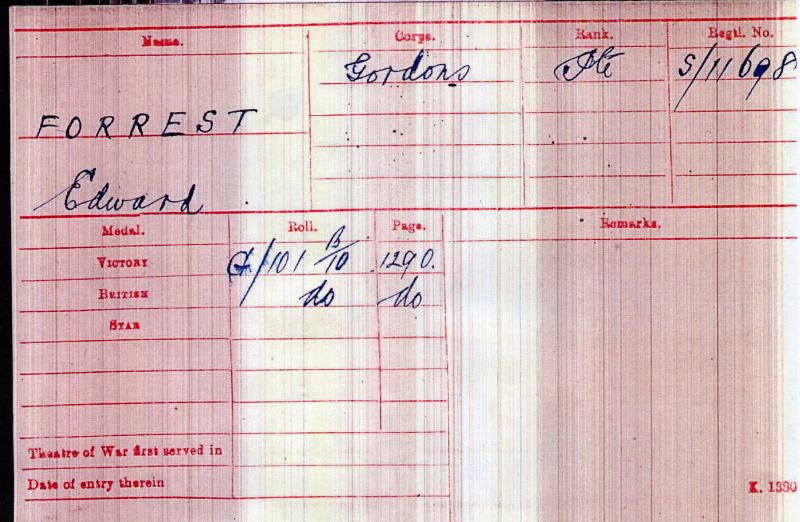 Name. Corps. Rank. Regtl. No.
Gordons Pte S/11698
FORREST
Edward
Medal. Roll. Page. Remarks.
VICTORY G/101 B/10 1290.
BRITISH do do
STAR
Theatre of War first served in
Date of entry therein
K. 1380